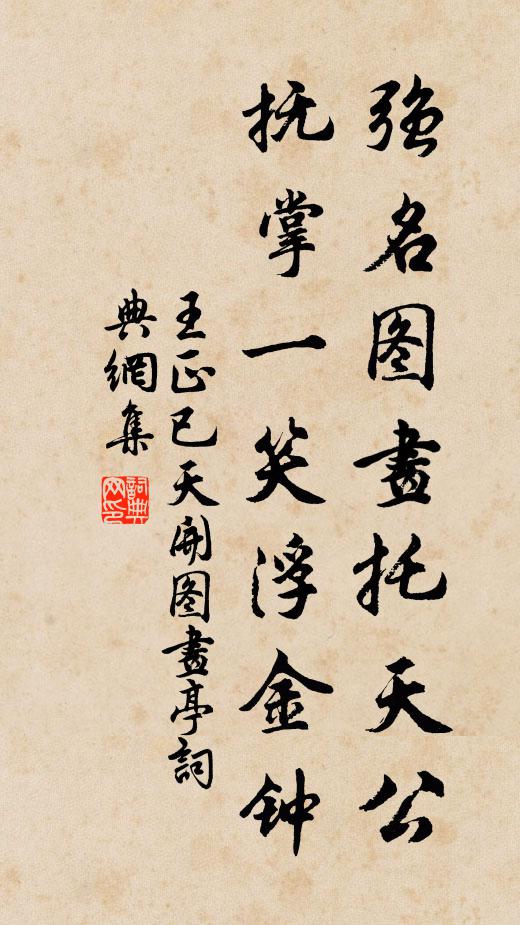 强名图畫托天公
抚掌一笑浮金钟
王正己天開图畫亭詞
典網集
詞典网印